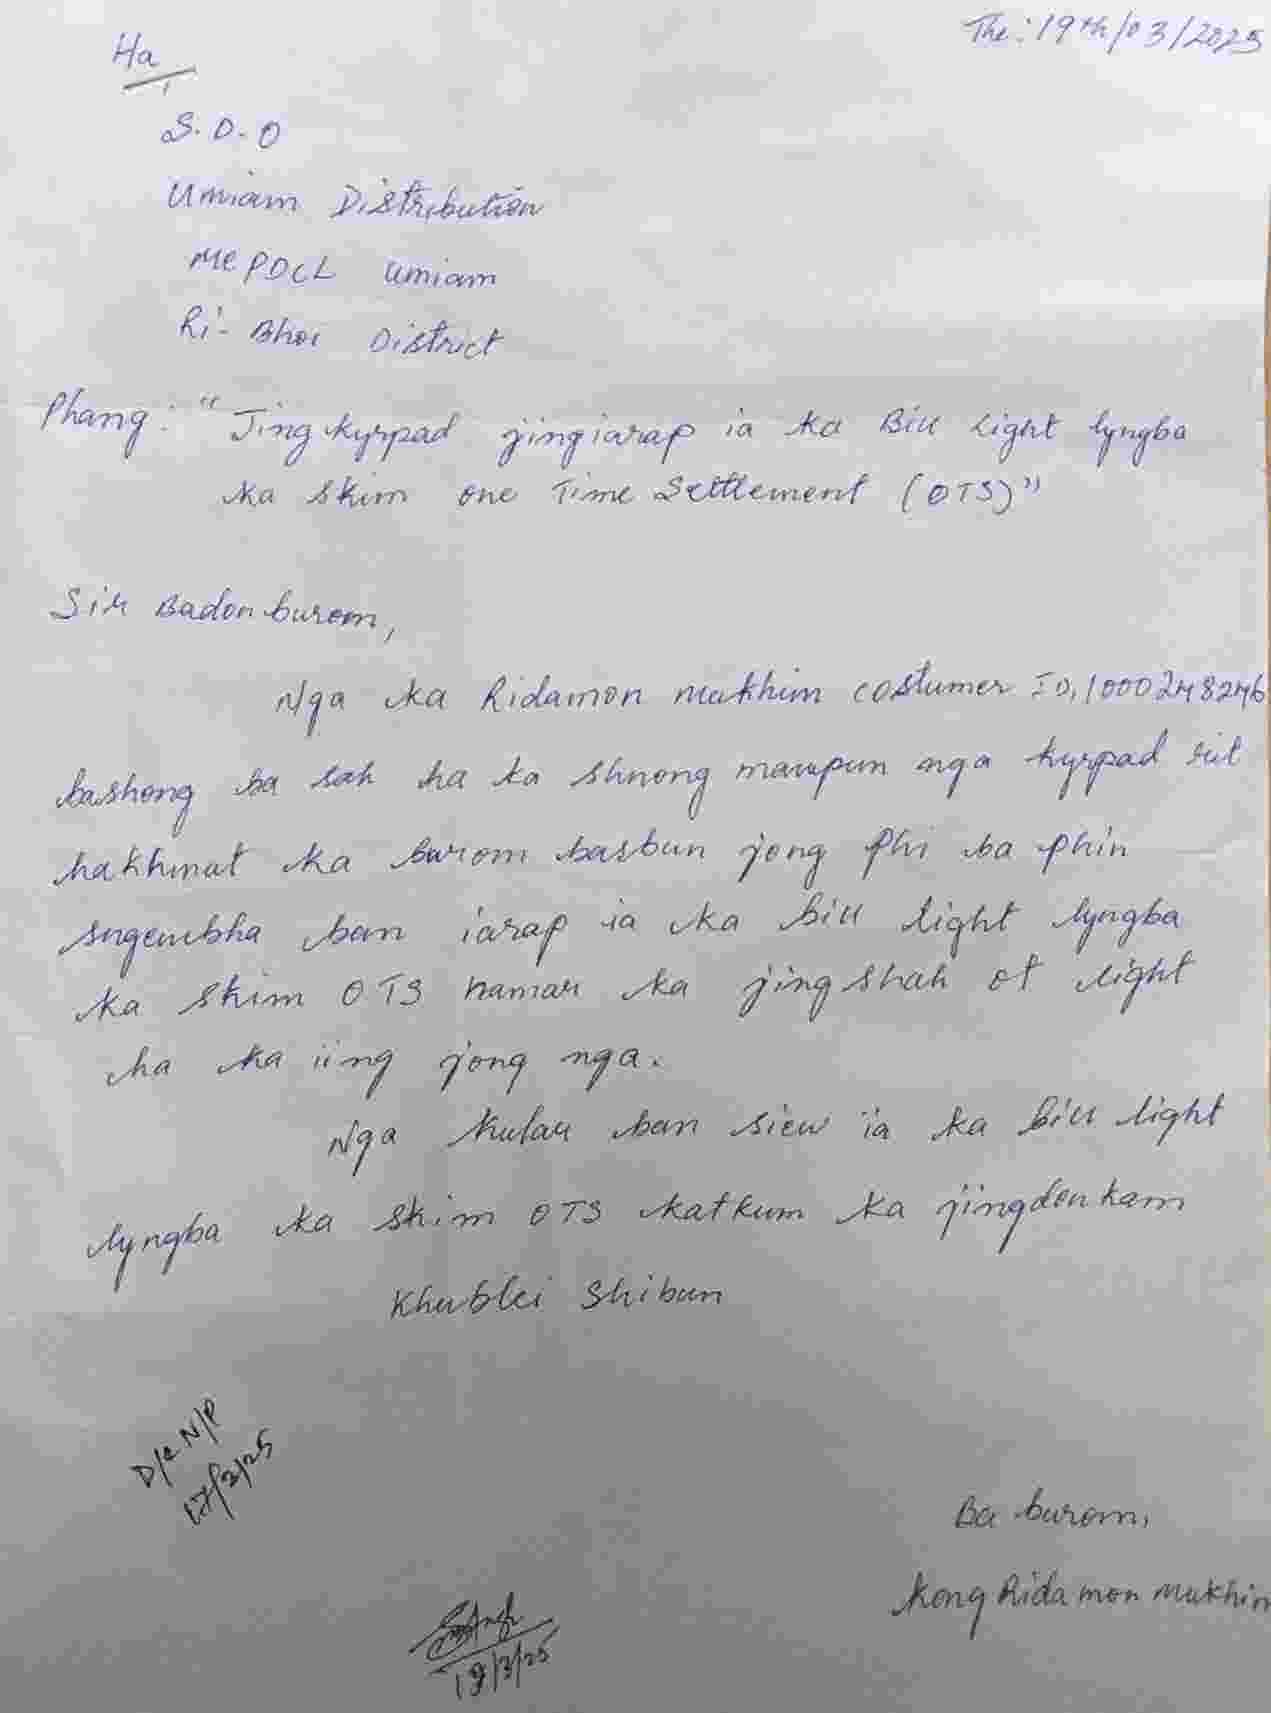 The: 19th/03/2025
Ha
S.D.O
Umiam Distribution
MePDCL Umiam
Ri-Bhoi District
Phang: "Jingkyrpad jingiarap ia ka Bill Light lyngba
ka skim one Time Settlement (OTS)"
Sir Badonburom,
Nga ka Ridamon Makhim costumer ID, 1000248246
bashong ba sah ha ka shnong mawpun nga kyrpad rit
hakhmat ka burom basbun jong phi ba phin
sngewbha ban iarap ia ka bill light lyngba
ka skim OTS namar ka jingshah ot light
ha ka iing jong nga.
Nga kular ban siew ïa ka bill light
lyngba ka skim OTS katkum ka jingdonkam
Khublei Shibun
D/c N/P
17/3/25
Ba burom,
Kong Ridamon Makhim
19/3/25